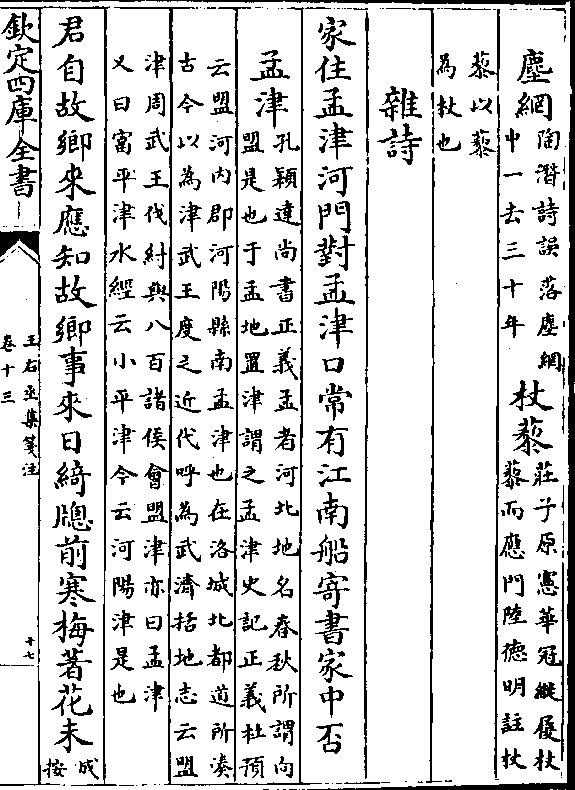 塵網陶潛詩誤落塵網
中一去三十年
杖藜莊子原憲華冠縰履杖
藜而應門陸德明註杖
藜以藜
為杖也
雜詩
家住孟津河門對孟津口常有江南船寄書家中否
孟津孔穎達尚書正義孟者河北地名春秋所謂向
盟是也于孟地置津謂之孟津史記正義杜預
云盟河内郡河陽縣南孟津也在洛城北都道所湊
古今以為津武王度之近代呼為武濟括地志云盟
津周武王伐紂與八百諸侯會盟津亦曰孟津
又曰富平津水經云小平津今云河陽津是也
君自故鄉來應知故鄉事來日綺牕前寒梅著花未成
按
欽定四庫全書
王右丞集箋注
卷十三
十七